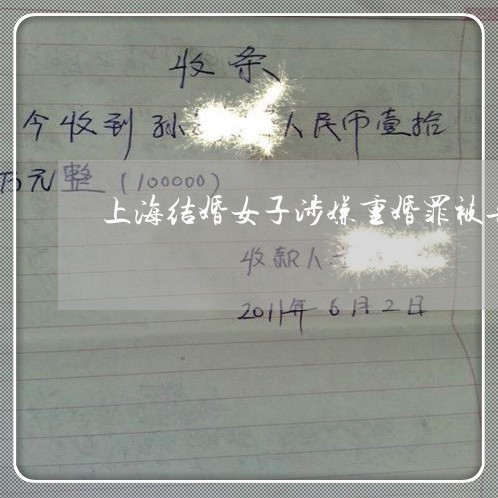 收条
今收到孙 人民币壹拾
万元整(100000)
上海结婚女子涉嫌重婚罪被
收款人
2011年6月2日